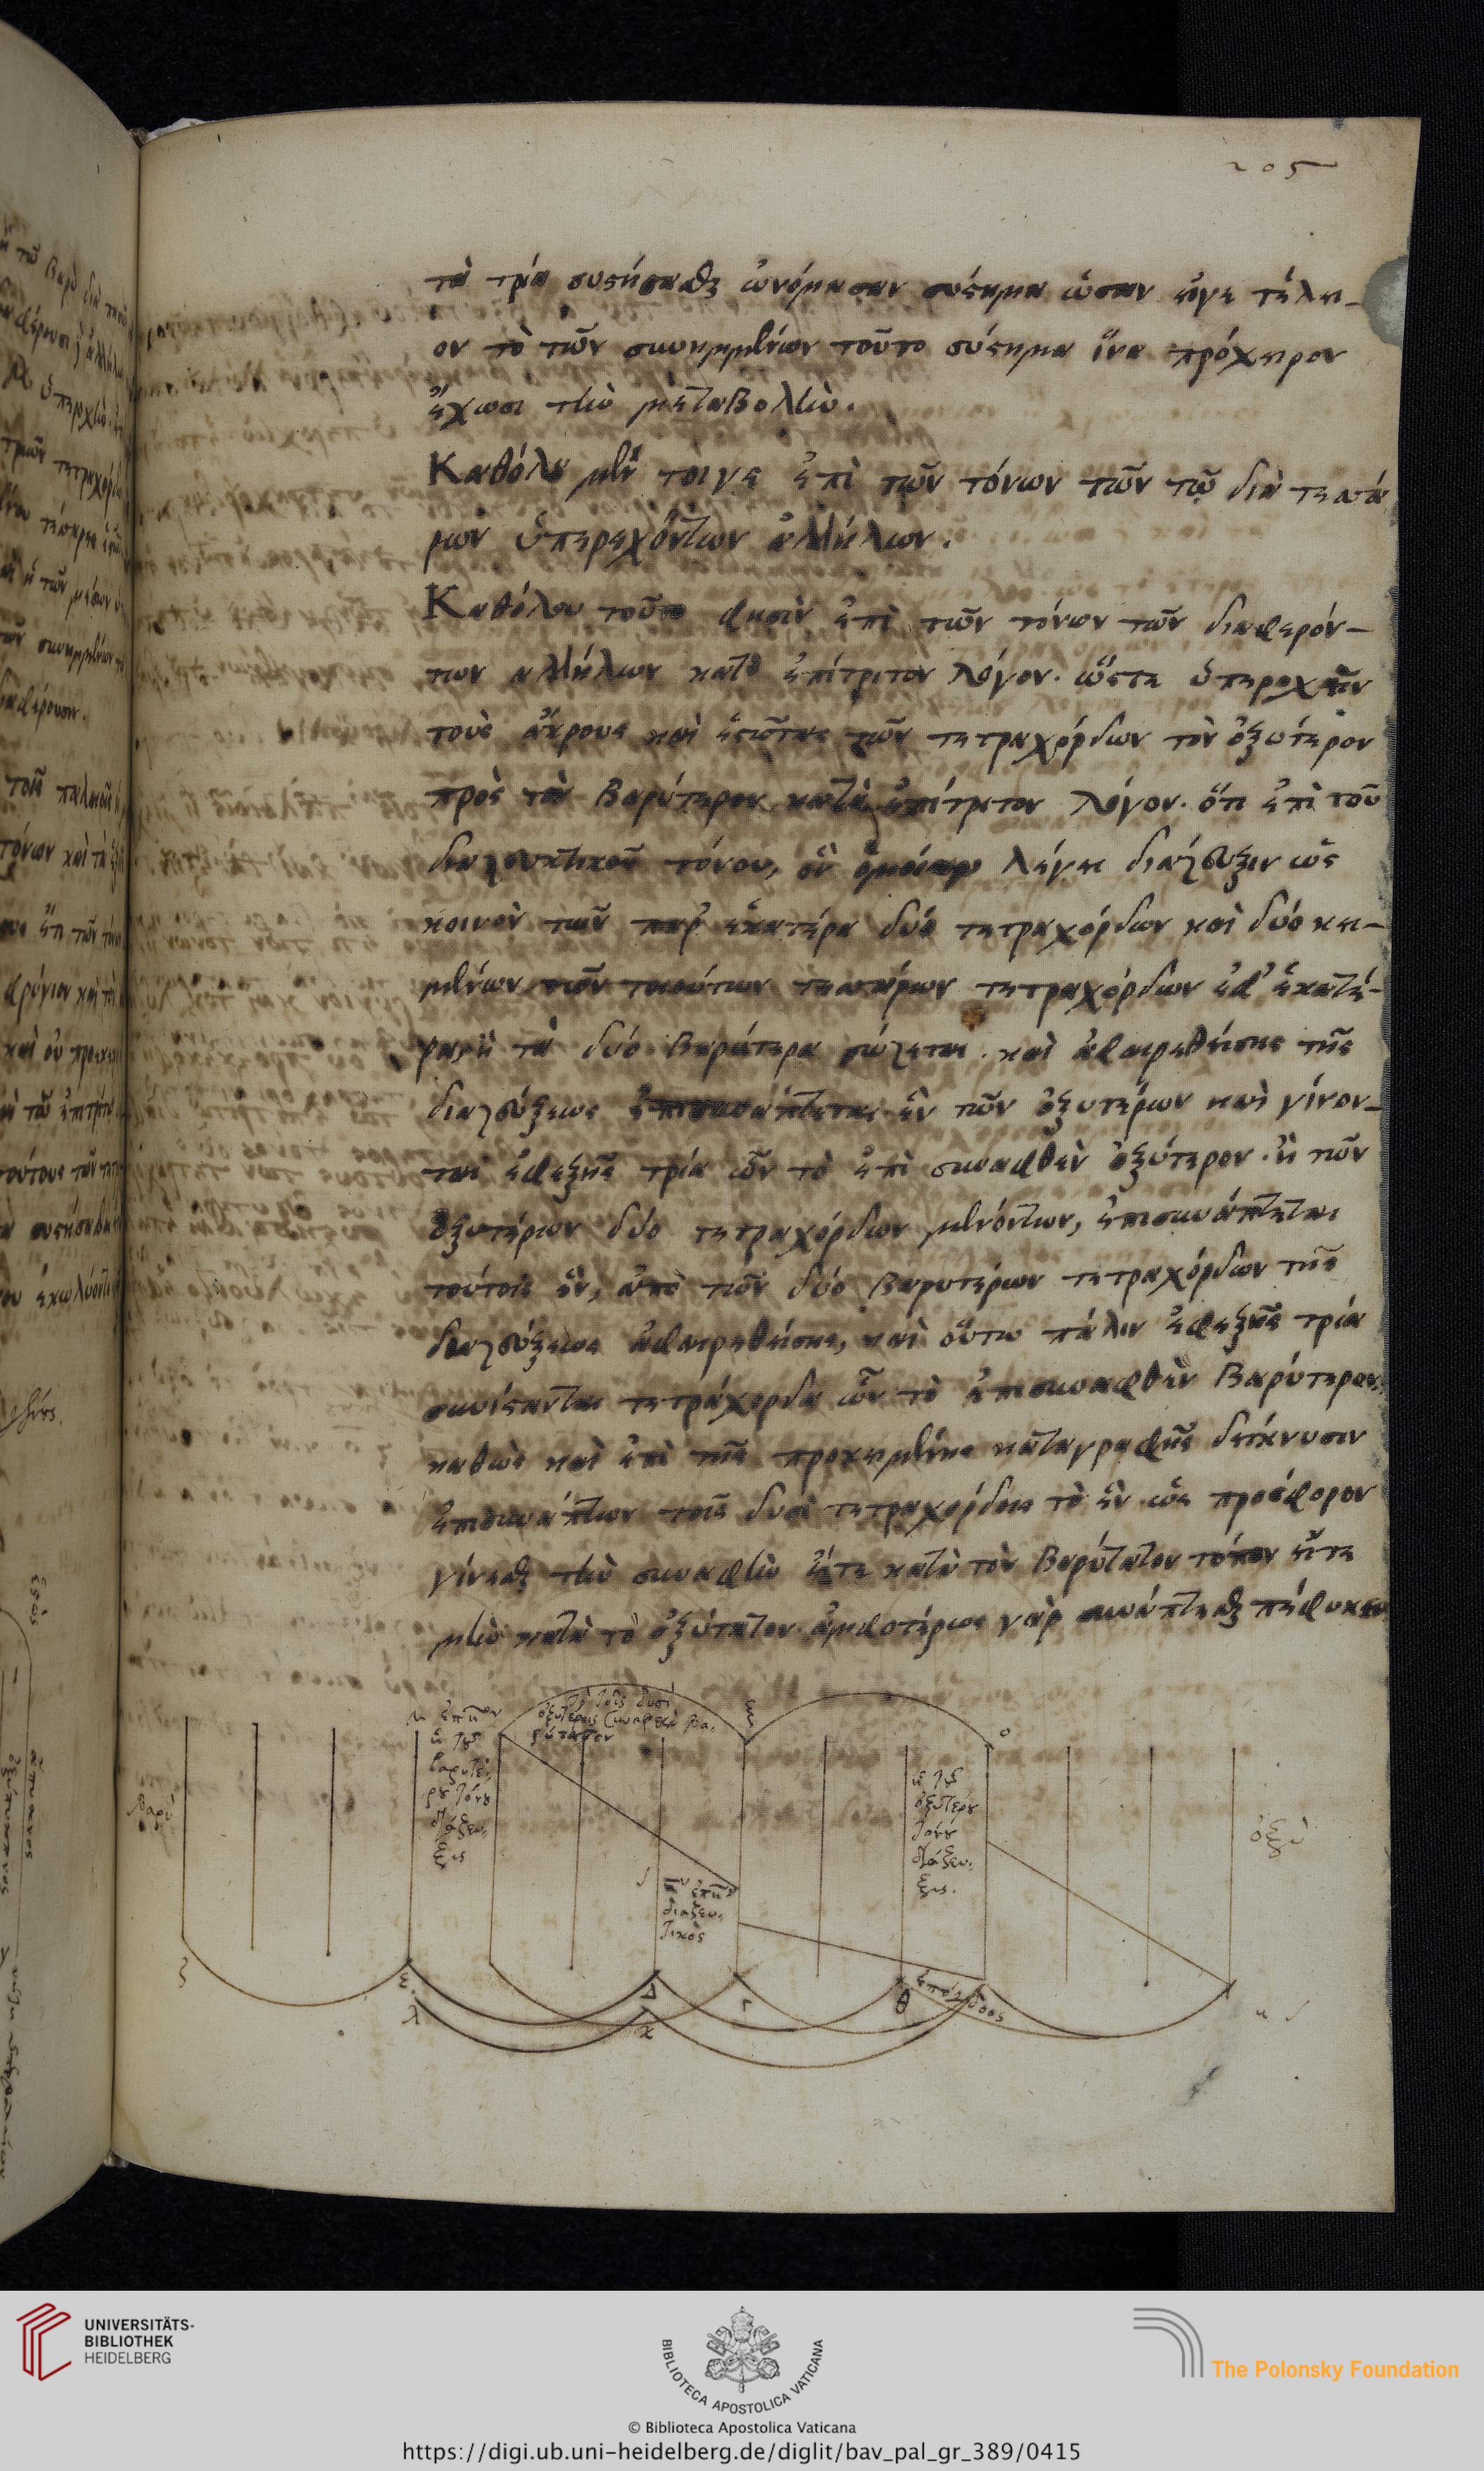 205
τὰ τρία συστήσασθαι ὠνόμασαν σύστημα ὡσὰν εἴγε τέλει-
ον τὸ τῶν συνημμένων τοῦτο σύστημα ἵνα πρόχειρον
ἔχωσι τὴν μεταβολήν.
Καθόλου μέν τοιγε ἐπὶ τῶν τόνων τῶν τῷ διὰ τεσσά
ρων ὑπερεχόντων ἀλλήλων.
Καθόλου τοῦτο φησὶν ἐπὶ τῶν τόνων τῶν διαφερόν-
των ἀλλήλων κατὰ ἐπίτριτον λόγον. ὥστε ὑπεροχὴν
τοὺς ἄκρους καὶ ἑστῶτας τῶν τετραχόρδων τὸν ὀξύτερον
πρὸς τὸν βαρύτερον κατὰ ἐπίτριτον λόγον. ὅτι ἐπὶ τοῦ
διαζευκτικοῦ τόνου, ὃν λέγει διάζευξιν ὡς
κοινὸν τῶν παρ' ἑκατέρα δύο τετραχόρδων καὶ δύο κει-
μένων τῶν τοιούτων τεσσάρων τετραχόρδων ἐφ' ἑκατέ-
ρα ἢ τὰ δύο βαρύτερα σώζεται. καὶ ἀφαιρεθείσης τῆς
διαζεύξεως ἐπισυνάπτεται ἓν τῶν ὀξυτέρων καὶ γίνον-
ται ἐφεξῆς τρία ὧν τὸ ἐπὶ συναφθὲν ὀξύτερον. ἢ τῶν
ὀξυτέρων δύο τετραχόρδων μενόντων, ἐπισυνάπτεται
τούτοις ἓν, ἀπὸ τῶν δύο βαρυτέρων τετραχόρδων τῆς
διαζεύξεως ἀφαιρεθείσης, καὶ οὕτω πάλιν ἐφεξῆς τρία
συνίστανται τετράχορδα ὧν τὸ ἐπισυναφθὲν βαρύτερον.
καθὼς καὶ ἐπὶ τῆς προκειμένης καταγραφῆς δείκνυσιν
ἐπισυνάπτων τοῖς δυσὶ τετραχόρδοις τὸ ἓν. ὡς πρόσφορον
γίνεσθαι τὴν συναφὴν εἴτε κατὰ τὸν βαρύτατον τόπον εἴτε
μὴν κατὰ τὸ ὀξύτατον. ἀμφοτέρως γὰρ συνάπτεσθαι πέφυκεν
τοῖς δυσὶ
ὀξυτέροις συναφθὲν βα-
ρύτατον
ξ
ο
ἡ τοῦ
βαρυτέ-
ρου τόνου
διάζευ-
ξις
ἡ τοῦ
ὀξυτέρου
τόνου
διάζευ-
ξις.
βαρύ
ὀξύ
διαζευ-
κτικὸς
ζ
ε
λ
Δ
κ
Γ
θ
ἐπόγδοος
UNIVERSITÄTS-
BIBLIOTHEK
HEIDELBERG
BIBLIOTECA APOSTOLICA VATICANA
The Polonsky Foundation
© Biblioteca Apostolica Vaticana
https://digi.ub.uni-heidelberg.de/diglit/bav_pal_gr_389/0415